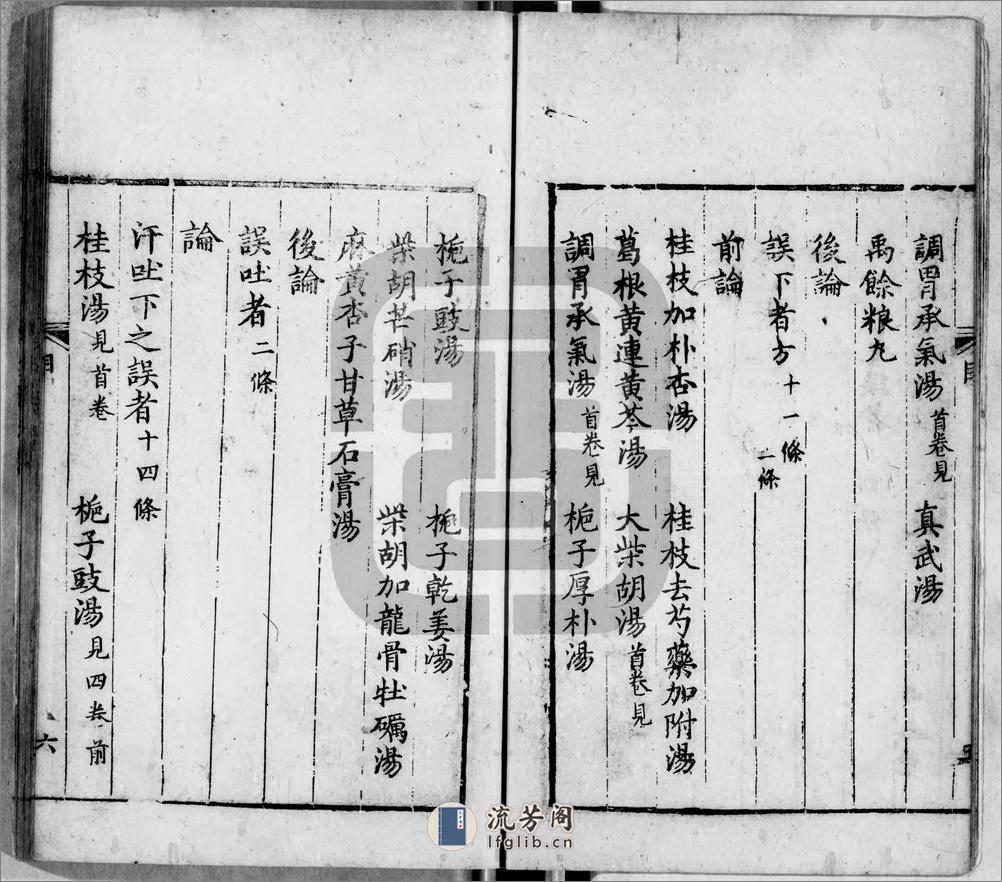 調胃承氣湯首卷見　真武湯
禹餘粮丸
後論
誤下者方十一條二條
前論
桂枝加朴杏湯　桂枝去芍藥加附湯
葛根黄連黄芩湯　大柴胡湯首卷見
調胃承氣湯首卷見　梔子厚朴湯
梔子豉湯　梔子乾姜湯
柴胡芒硝湯　柴胡加龍骨牡礪湯
麻黃杏子甘草石膏湯
後論
誤吐者二條
論
汗吐下之誤者十四條
桂枝湯見首卷　梔子豉湯見四卷前
目
六
流芳阁
lfglib.cn